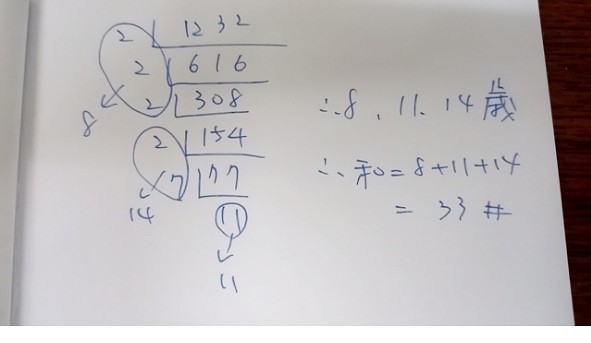 2 1232
2 616
2 308
8
2 154
7 77
14
11
11
∴8、11、14歲
∴和=8+11+14
=33 #